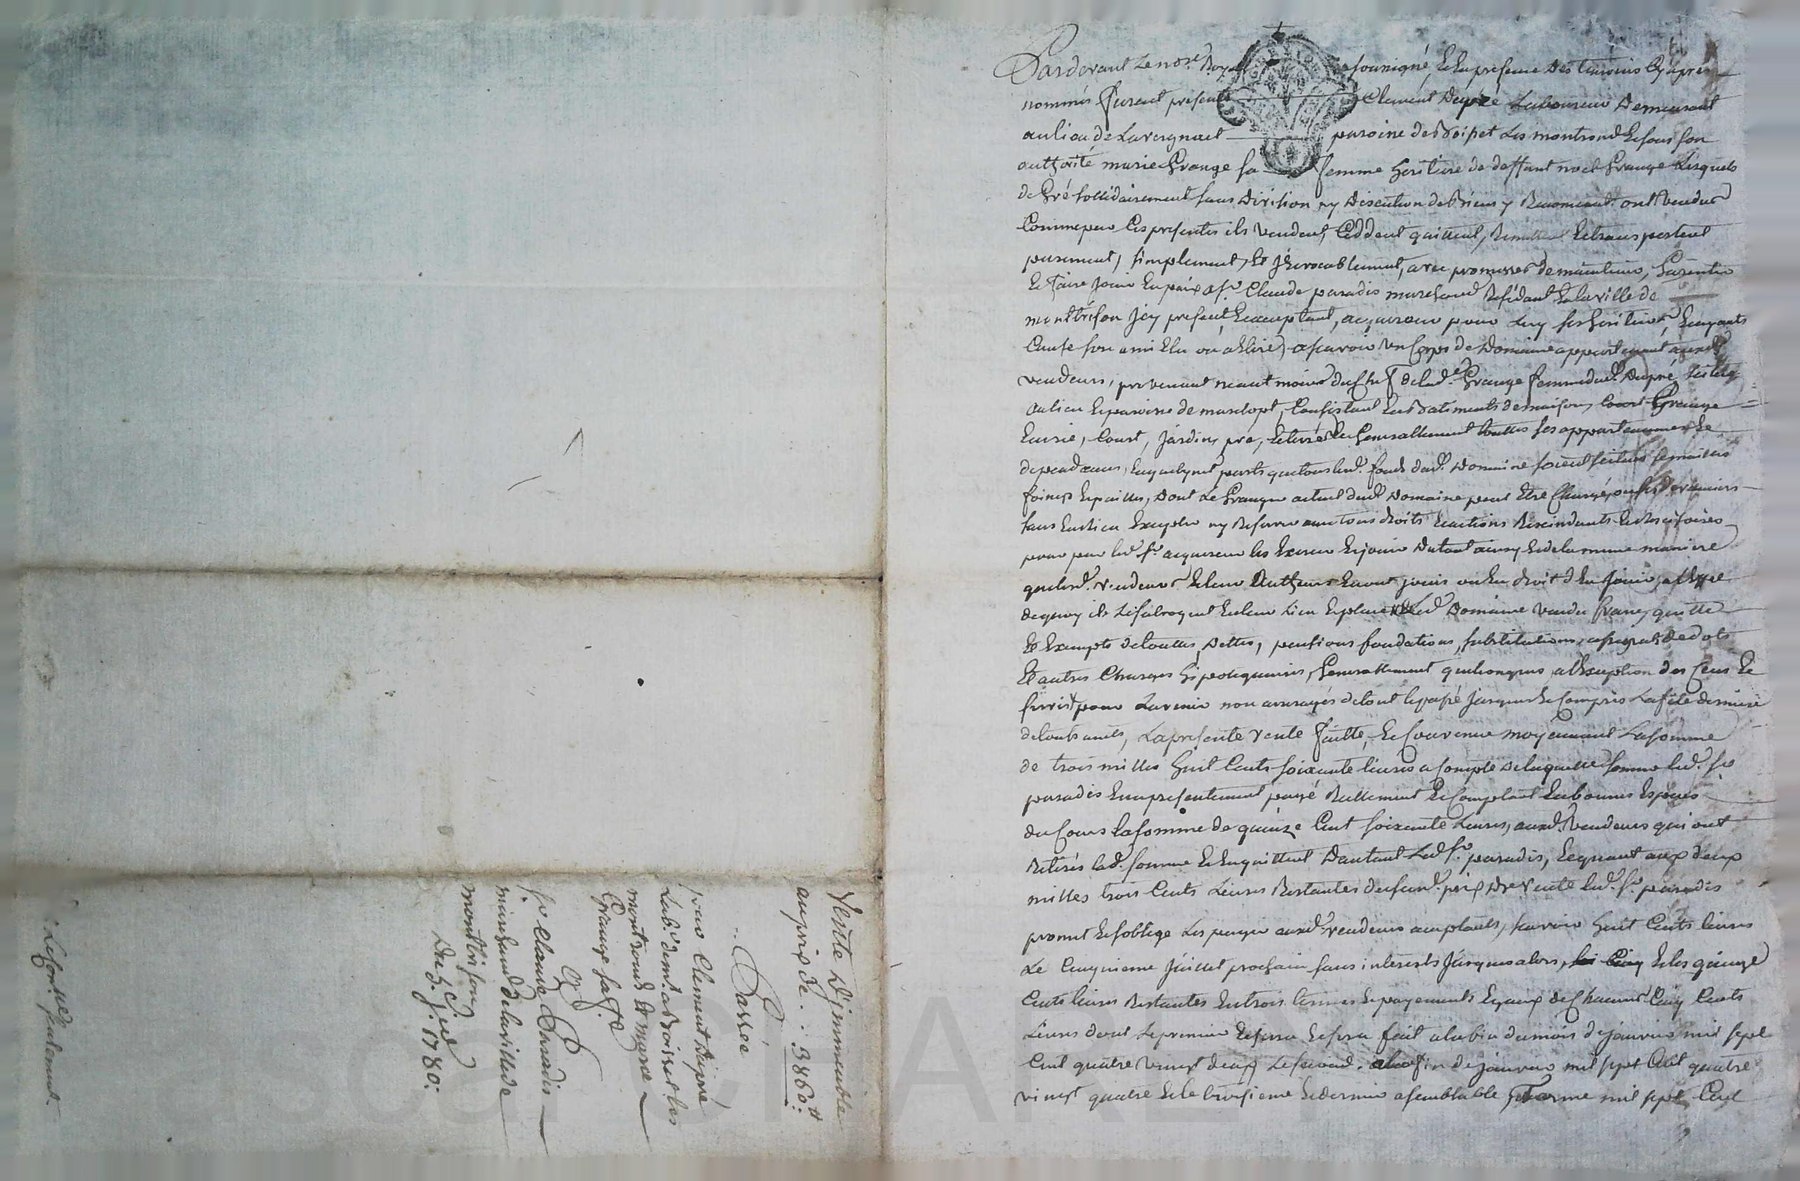 Pardevant Le no.re Royal soussigné, Et En presence des temoins Cy apres
nommés furent presents Clement Dupré Laboureur Demeurant
au lieu de Lavergnat paroisse de Boisset Les montrond Et sous son
authorité marie Grange sa femme heritiere de deffunt noel Grange Lesquels
de Gré sollidairement sans Division ny Discution de Biens y Renoncent ont vendus
Comme par Ces presentes ils vendent, Ceddent quittent, Remettent Et transportent
purement, simplement, Et Irrevocablement, avec promesses de maintenir, Garentir
Et faire Jouir En paix a s.r Claude paradis marchand Residant En la ville de
montbrison Icy present Et acceptant, acquereur pour Luy ses heritiers, Et ayants
Cause son ami Elu ou a Elire, a sçavoir un Corps de Domaine appartenant auxd.
vendeurs, provenant neant moins du chef de lad.e Grange femme dud. Dupré, situé
au lieu Et paroisse de marclopt, Consistant En Batiments de maison, Grange
Eurie, Court, Jardin, pré, Et terre Et Generallement touttes ses appartenances Et
dependances, En quelques parts que tous Lesd. fonds dud. Domaine soient situés semailles
foins Et pailles, Dont Le Granger actuel dud. Domaine peut Etre Chargé
sans En Rien Excepter ny Reserver avec tous droits Et actions Rescindants Et Rescisoires
pour par led. s.r acquereur Les Exercer Et jouir Du tout ainsy Et de la meme maniere
que lesd. vendeurs Et leurs Autheurs En ont jouis ou Eu droit d'En Jouir, a l'Effet
de quoy ils Le subrogent En leur Lieu Et place Led. Domaine vendu franc, quitte
Et Exempt de touttes Dettes, pentions fondations, substitutions, de dots
Et autres Charges hipotequaires, Generallement quelconques, a l'Exception des Cens Et
servis pour Lavenir non arreragés de tout le passé Jusques Et Compris La fête derniere
de touts saints, La presente vente faitte, Et Convenue moyennant La somme
de trois milles huit Cents soixante livres a Compte de laquelle somme led. s.r
paradis En a presentement payé Reellement Et Comptant En bonnes Especes
du Cours la somme de quinze Cent soixante Livres, auxd. vendeurs qui ont
Retirés lad. somme Et En quittent D'autant Led. s.r paradis, Et quant aux deux
milles trois Cents Livres Restantes dud. prix De vente led. s.r paradis
promet Et soblige Les payer auxd. vendeurs acceptants, sçavoir huit Cents livres
Le Cinquieme Juillet prochain sans interests Jusques alors, Et les quinze
Cents livres Restantes En trois termes Et payements Egaux de Chacuns Cinq Cents
Livres dont Le premier Echerra Et sera fait a la fin du mois de Janvier mil sept
Cent quatre vingt deux Le second a la fin de Janvier mil sept Cent quatre
vingt quatre Et le troisieme Et dernier a semblable Terme mil sept Cent
Vente D'immeuble
au prix de ... 3860.tt
Passée
par Clement Dupré
Lab.r dem.t a Boisset les
montrond Et marie
Grange sa f.e
A
s.r Claude Paradis
marchand de la ville de
montbrison
Du 5. J. 1780.